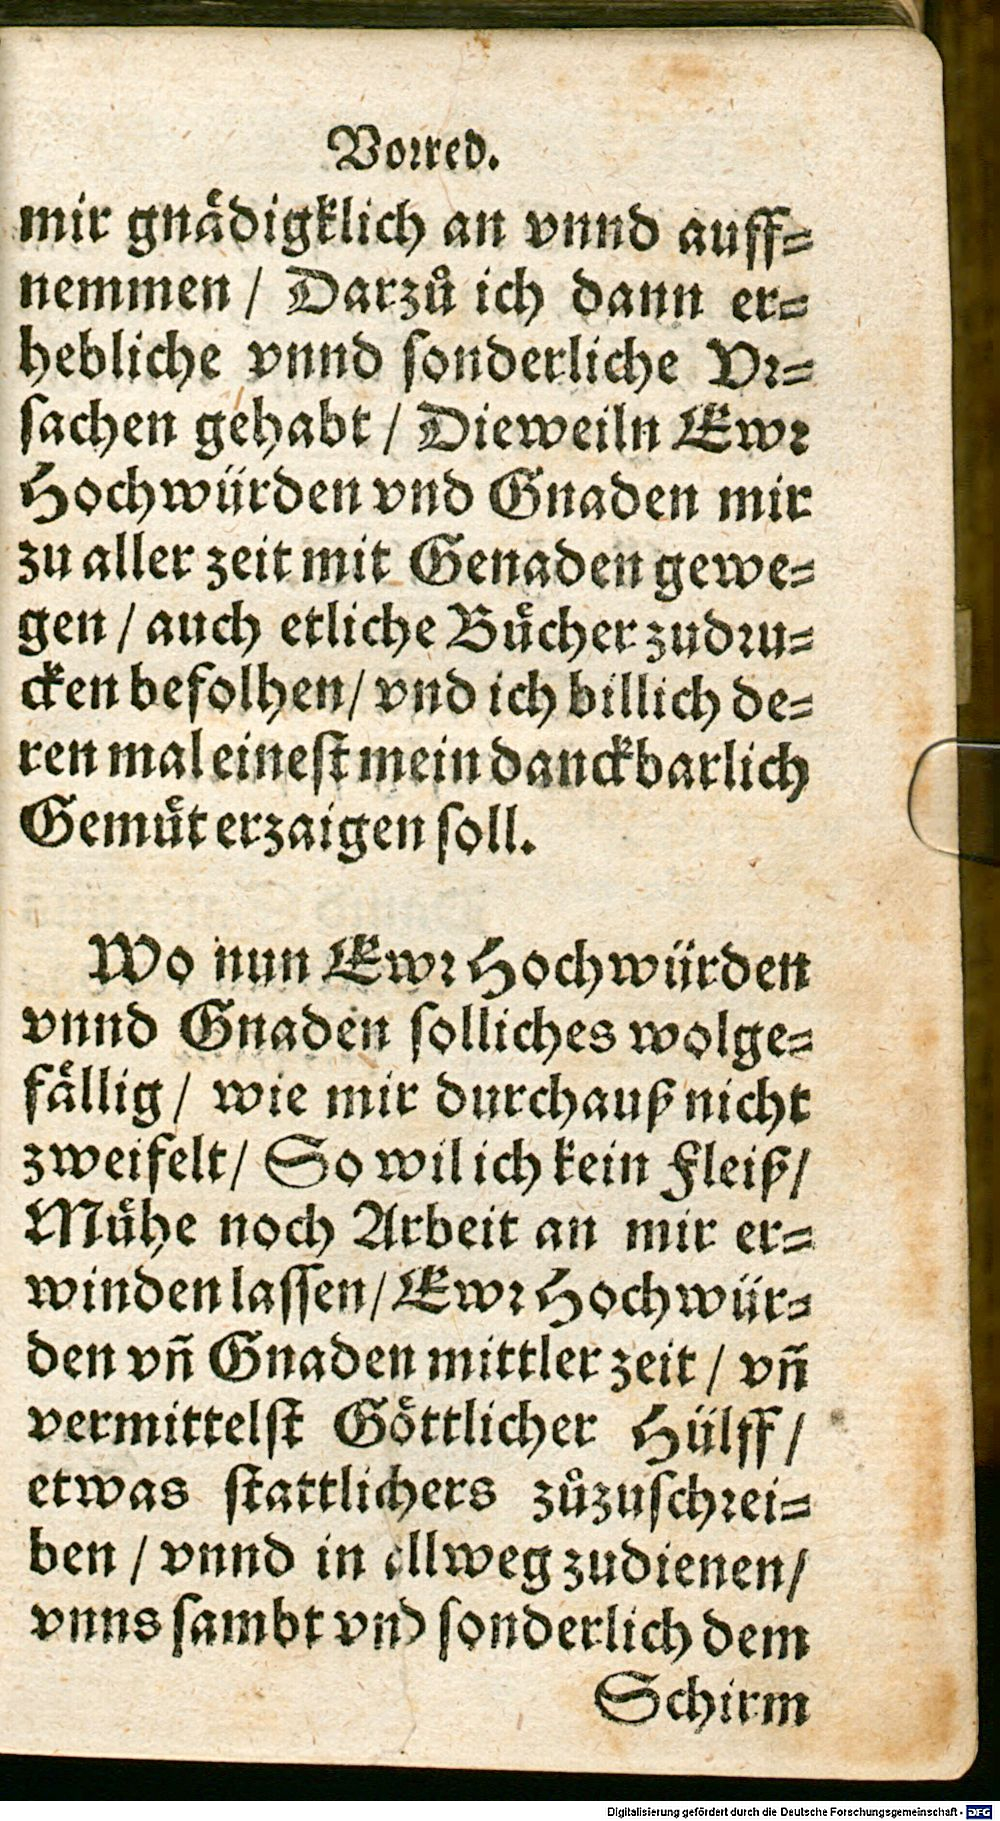 Vorred.
mir gnaͤdigklich an vnnd auff⸗
nemmen / Darzuͦ ich dann er⸗
hebliche vnnd ſonderliche Vr⸗
ſachen gehabt / Dieweiln Ewr
Hochwürden vnd Gnaden mir
zu aller zeit mit Genaden gewe⸗
gen / auch etliche Buͤcher zudru⸗
cken befolhen / vnd ich billich de⸗
ren mal eineſt mein danckbarlich
Gemuͤt erzaigen ſoll.
Wo nun Ewr Hochwürden
vnnd Gnaden ſolliches wolge⸗
faͤllig / wie mir durchauß nicht
zweifelt / So wil ich kein Fleiß /
Muͤhe noch Arbeit an mir er⸗
winden laſſen / Ewr Hochwür⸗
den vñ Gnaden mittler zeit / vñ
vermittelſt Goͤttlicher Hülff /
etwas ſtattlichers zuͦzuſchrei⸗
ben / vnnd in allweg zudienen /
vnns ſambt vnd ſonderlich dem
Schirm
Digitalisierung gefördert durch die Deutsche Forschungsgemeinschaft - DFG